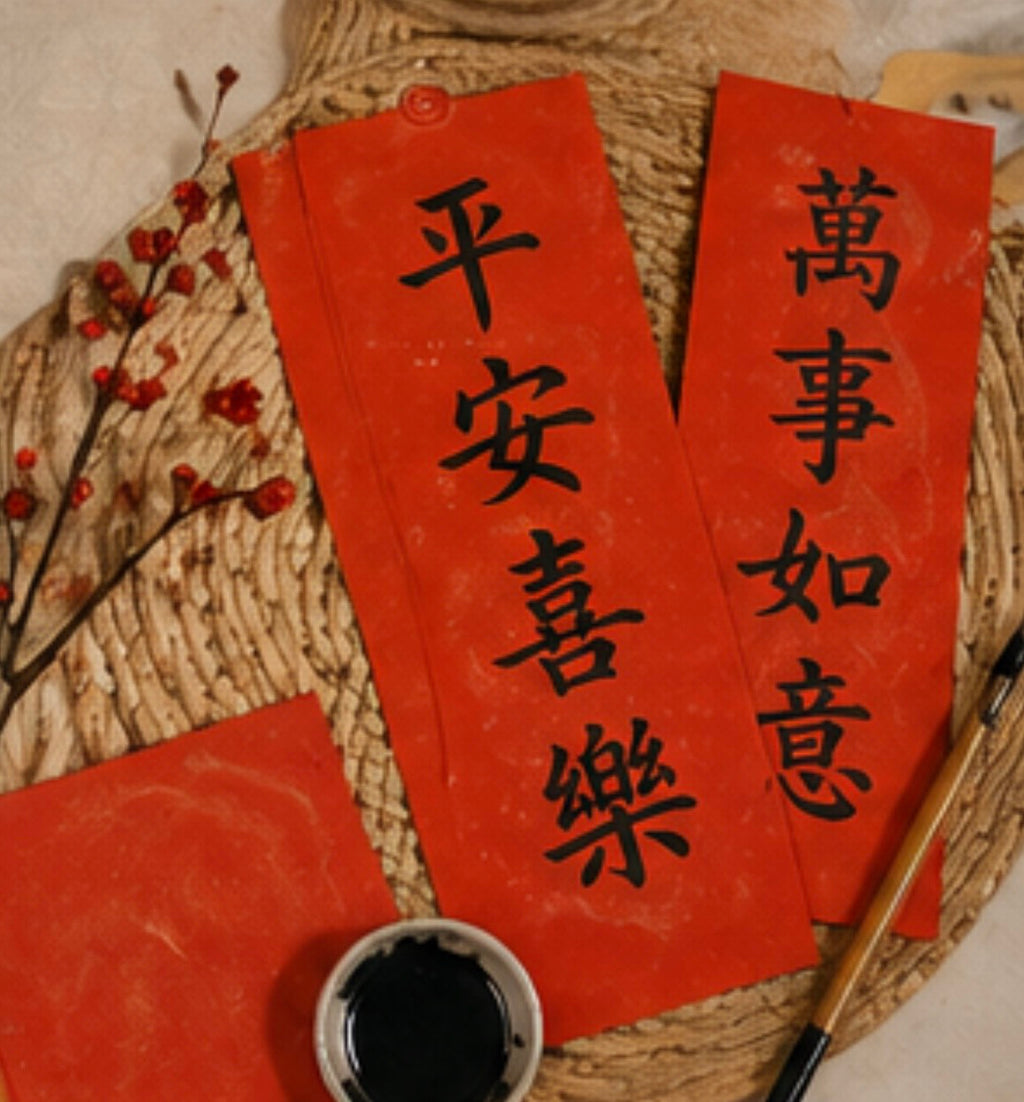 萬事如意
平安喜樂